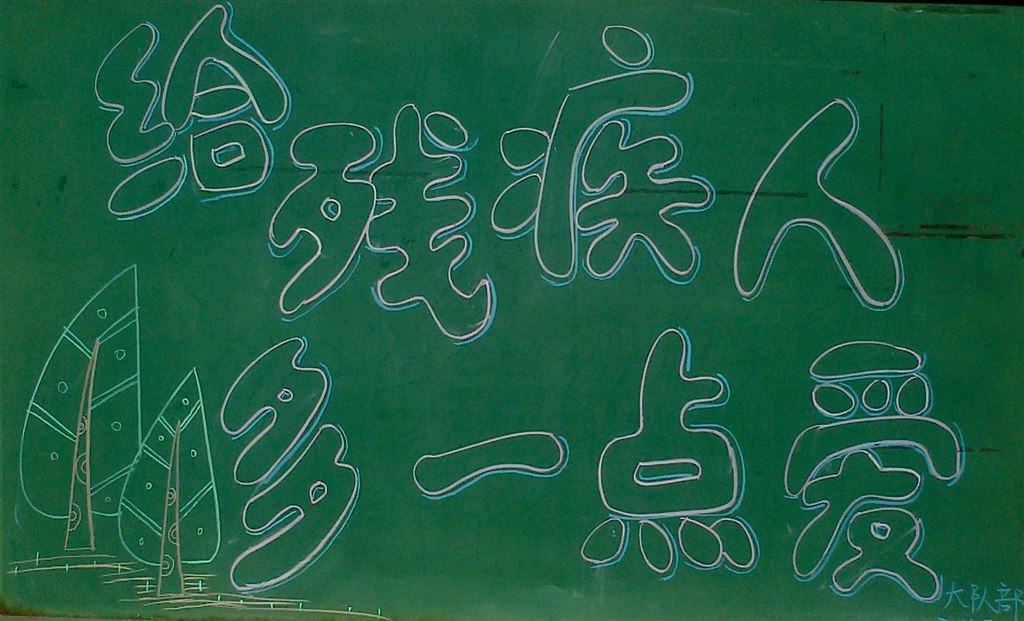 给残疾人
多一点爱
大队部